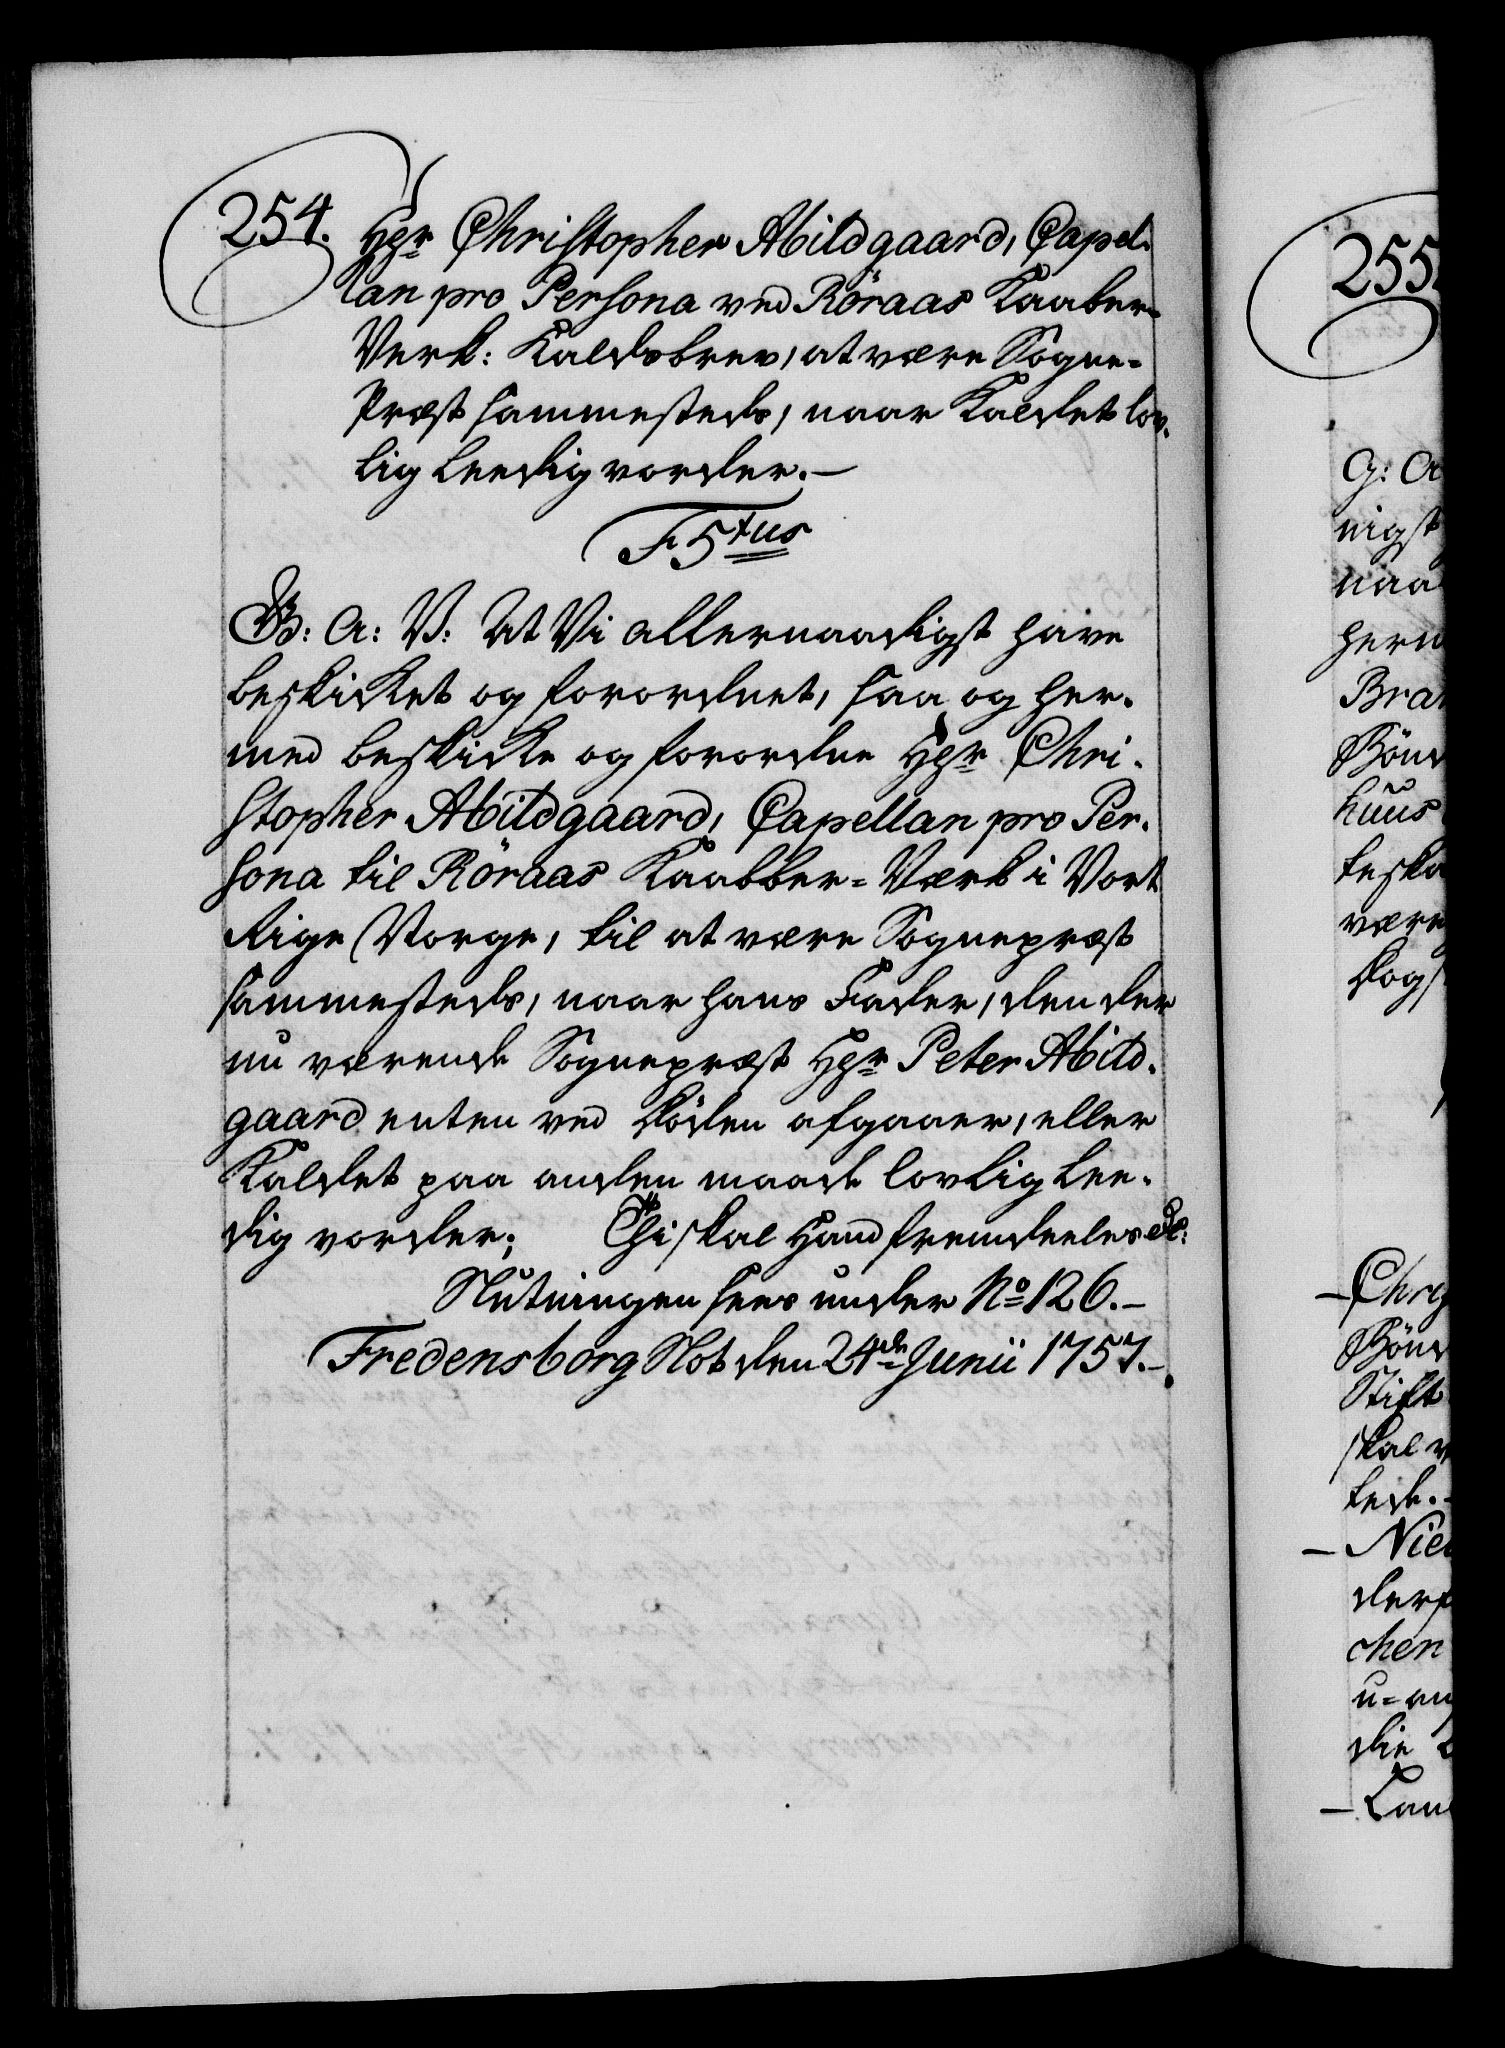 254.
Hr. Christopher Abildgaard, Capel-
lan pro Persona ved Röraas Kaaber-
Verk: Kaldsbrev, at være Sogne-
Præst sammesteds, naar Kaldet lov-
lig leedig vorder.
F5tus
G: A: V: At Vi allernaadigst have
beskicket og forordnet, saa og her-
med beskicke og forordne Hr. Chri-
stopher Abildgaard, Capellan pro Per-
sona til Röraas Kaabber-Værk i Vort
Rige Norge, til at være Sognepræst
sammesteds, naar hans Fader, den der
nu værende Sognepræst Hr. Peter Abild-
gaard enten ved Döden afgaaer, eller
Kaldet paa anden maade lovlig lee-
dig vorder; Thi skal Hand fremdeeles etc:
Slutningen sees under No 126.
Fredensborg Slot den 24de Junii 1757.
255
G: A
nigst
naa
herv
Bra
Bönd
huus
teska
være
Dog
Chr
Bönd
Stift
skal v
tede.
Nie
ders
chen
u=an
die
Lan